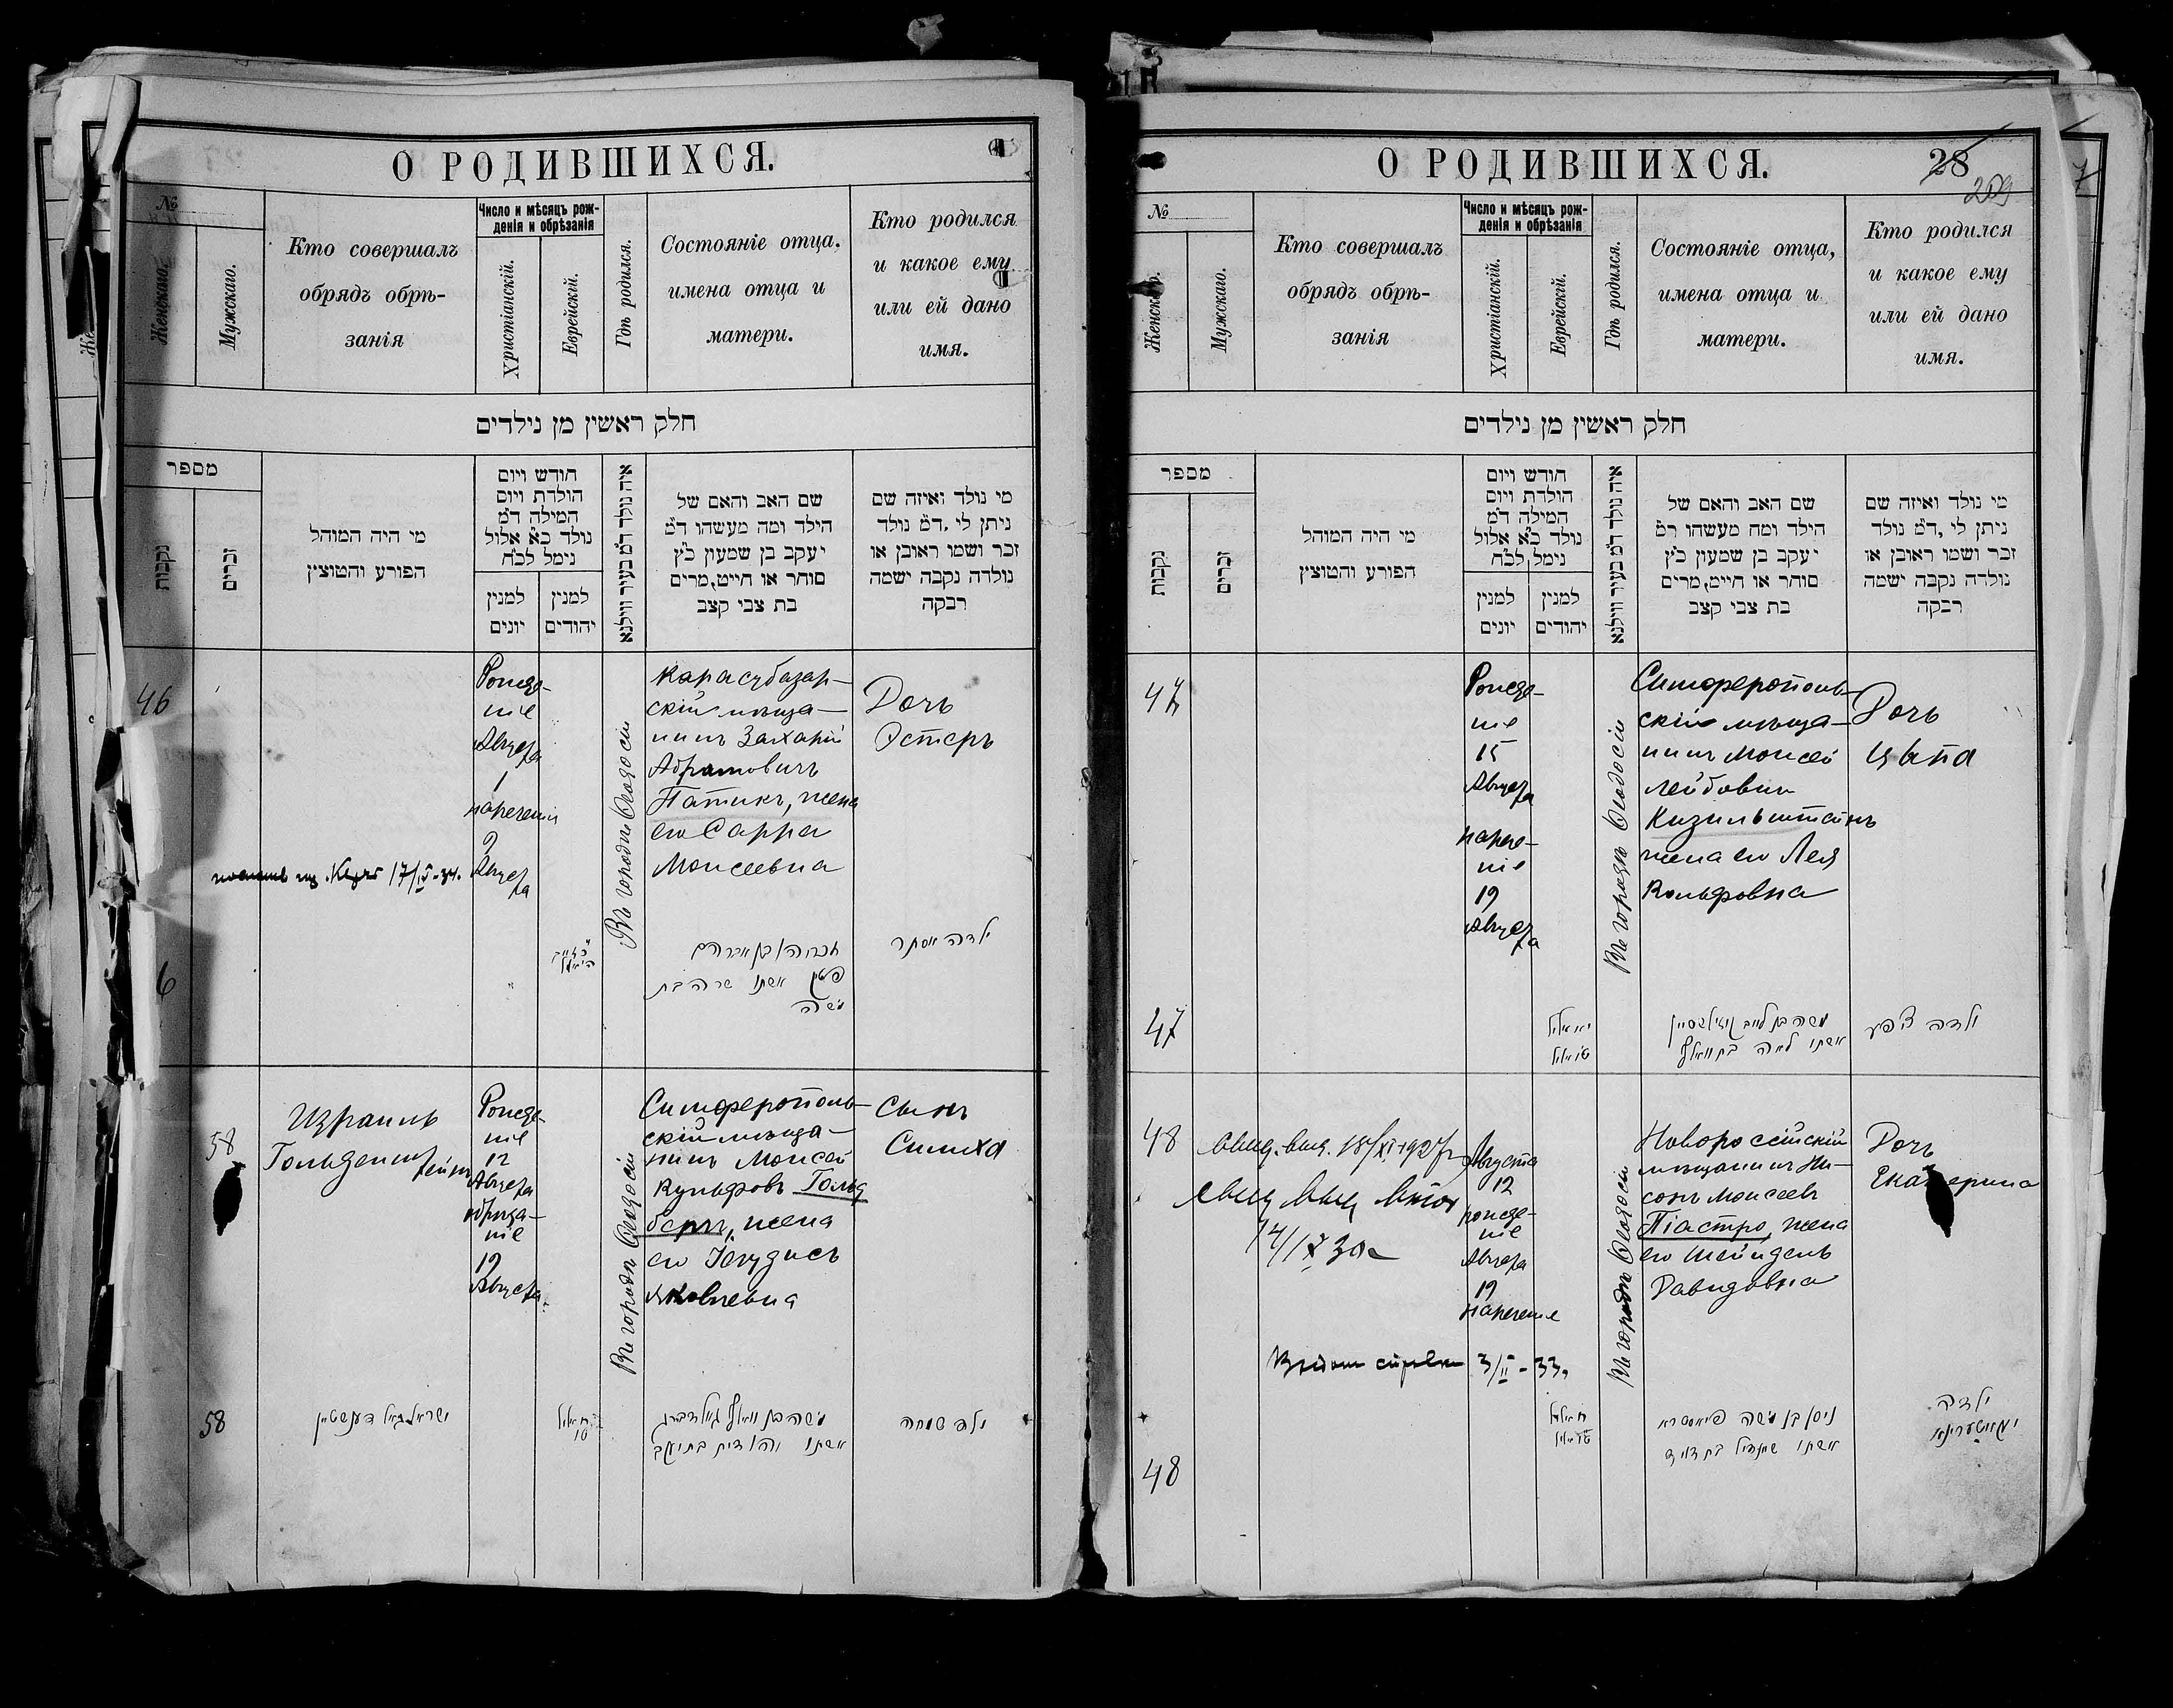 О РОДИВШИХСЯ.
№
Женскаго.
Мужскаго.
Кто совершалъ
обрядъ обрѣ-
занія
Число и мѣсяцъ рож-
денія и обрѣзанія
Христіанскій.
Еврейскій.
Гдѣ родился.
Состояніе отца.
имена отца и
матери.
Кто родился
и какое ему
или ей дано
имя.
חלק ראשין מן נילדים
מספר
נקבות
זכרים
מי היה המוהל
הפורע והטוצץ
חודש ויום
הולדת ויום
המילה ד״מ
נולד כ״א אלול
נימל לכ״ח
למנין
יונים
למנין
יהודים
איה נולד ד״מ בעיר ווילנא
שם האב והאם של
הילד ומה מעשהו ד״מ
יעקב בן שמעון כ״ץ
סוחר או חייט, מרים
בת צבי קצב
מי נולד ואיזה שם
ניתן לי, ד״מ נולד
זכר ושמו ראובן או
נולדה נקבה ישמה
רבקה
46
Рожде-
ніе
Августа
1
нареченія
9
Августа
Въ городѣ Ѳеодосіи
Карасубазар-
скій мѣща-
нинъ Захарій
Абрамовичъ
Патикъ, жена
его Сарра
Моисеевна
Дочь
Эстеръ
17/IV-34.
6
זכריה בן אברהם
פטיק אשתו שרה בת
משה
ילדה אסתר
58
Израиль
Гольденштейнъ
Рожде-
ніе
12
Августа
обрѣза-
ніе
19
Августа
Въ городѣ Ѳеодосіи
Симферополь-
скій мѣща-
нинъ Моисей
Вульфовъ Гольд
бергъ, жена
его Іегудисъ
Яковлевна
Сынъ
Симха
58
משה בן וואלף גאלדבערג
אשתו יהודית בת יעקב
ילד שמחה
О РОДИВШИХСЯ.
28
209
№
Женскаго.
Мужскаго.
Кто совершалъ
обрядъ обрѣ-
занія
Число и мѣсяцъ рож-
денія и обрѣзанія
Христіанскій.
Еврейскій.
Гдѣ родился.
Состояніе отца,
имена отца и
матери.
Кто родился
и какое ему
или ей дано
имя.
חלק ראשין מן נילדים
מספר
נקבות
זכרים
מי היה המוהל
הפורע והטוצץ
חודש ויום
הולדת ויום
המילה ד״מ
נולד כ״א אלול
נימל לכ״ח
למנין
יונים
למנין
יהודים
איה נולד ד״מ בעיר ווילנא
שם האב והאם של
הילד ומה מעשהו ד״מ
יעקב בן שמעון כ״ץ
סוחר או חייט, מרים
בת צבי קצב
מי נולד ואיזה שם
ניתן לי, ד״מ נולד
זכר ושמו ראובן או
נולדה נקבה ישמה
רבקה
47
Рожде-
ніе
15
Августа
нарече-
ніе
19
Августа
Въ городѣ Ѳеодосіи
Симферополь-
скій мѣща-
нинъ Моисей
Лейбовъ
Кизильштейнъ
жена его Лея
Вольфовна
Дочь
Цыпа
47
משה בן לייב קיזילשטיין
אשתו לאה בת וואלף
ילדה ציפע
48
18/XI 1927 г.
Августа
12
рожде-
ніе
Августа
19
нареченіе
Въ городѣ Ѳеодосіи
Новороссійскій
мѣщанинъ Ни-
сонъ Моисеевъ
Піастро, жена
его Шейндель
Давидовна
Дочь
Екатерина
3/II-33
ניסן בן משה פיאסטרא
אשתו שיינדיל בת דוד
ילדה
יעקאטערינא
48